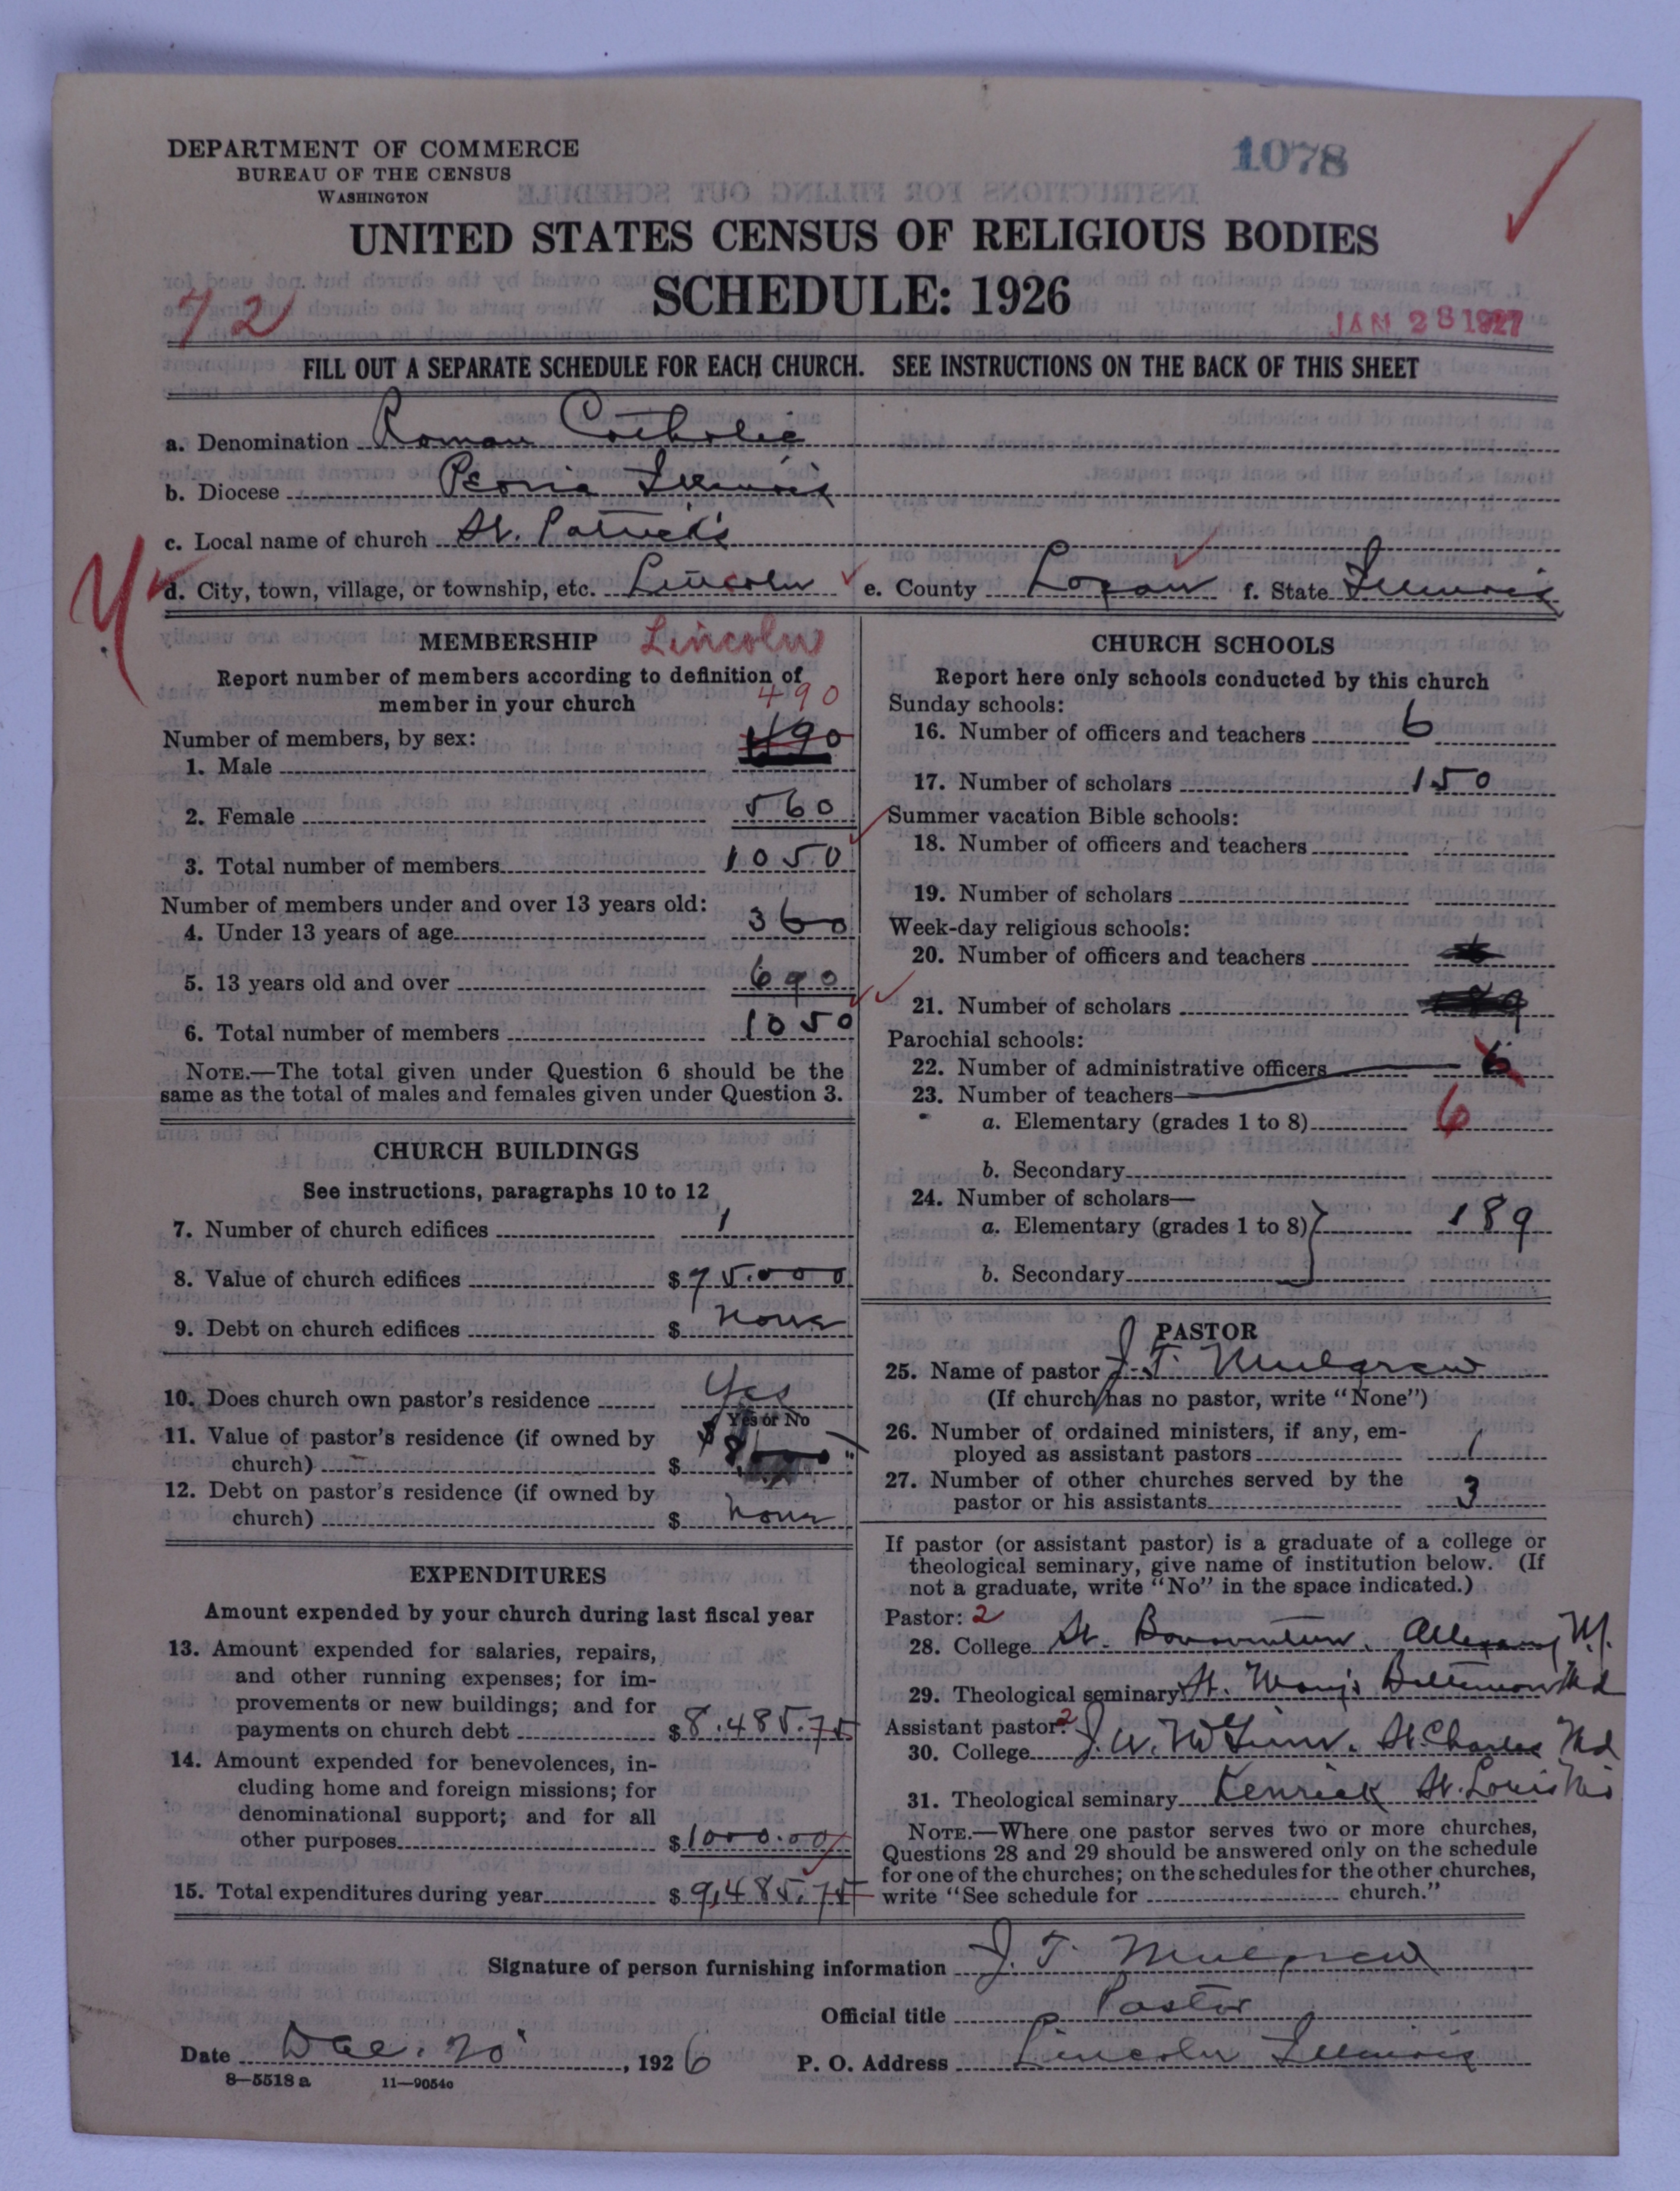 DEPARTMENT OF COMMERCE
BUREAU OF THE CENSUS
WASHINGTON
1078
UNITED STATES CENSUS OF RELIGIOUS BODIES
SCHEDULE: 1926
72
JAN 28 1927
FILL OUT A SEPARATE SCHEDULE FOR EACH CHURCH. SEE INSTRUCTIONS ON THE BACK OF THIS SHEET
a. Denomination Roman Catholic
b. Diocese Peoria Illinois
c. Local name of church St. Patrick's
d. City, town, village, or township, etc. Lincoln e. County Logan f. State Illinois
MEMBERSHIP Lincoln
Report number of members according to definition of
member in your church
490
Number of members, by sex:
1. Male 490
2. Female 560
3. Total number of members 1050
Number of members under and over 13 years old:
4. Under 13 years of age 360
5. 13 years old and over 690
6. Total number of members 1050
NOTE.—The total given under Question 6 should be the
same as the total of males and females given under Question 3.
CHURCH BUILDINGS
See instructions, paragraphs 10 to 12
7. Number of church edifices 1
8. Value of church edifices $75.000
9. Debt on church edifices $ none
10. Does church own pastor's residence Yes
Yes or No
11. Value of pastor's residence (if owned by
church) $
12. Debt on pastor's residence (if owned by
church) $ none
EXPENDITURES
Amount expended by your church during last fiscal year
13. Amount expended for salaries, repairs,
and other running expenses; for im-
provements or new buildings; and for
payments on church debt $8.485.75
14. Amount expended for benevolences, in-
cluding home and foreign missions; for
denominational support; and for all
other purposes $1000.00
15. Total expenditures during year $9,485.75
CHURCH SCHOOLS
Report here only schools conducted by this church
Sunday schools:
16. Number of officers and teachers 6
17. Number of scholars 150
Summer vacation Bible schools:
18. Number of officers and teachers
19. Number of scholars
Week-day religious schools:
20. Number of officers and teachers
21. Number of scholars
Parochial schools:
22. Number of administrative officers 6
23. Number of teachers—
a. Elementary (grades 1 to 8) 6
b. Secondary
24. Number of scholars—
a. Elementary (grades 1 to 8) 189
b. Secondary
PASTOR
25. Name of pastor J. T. Mulgrew
(If church has no pastor, write "None")
26. Number of ordained ministers, if any, em-
ployed as assistant pastors 1
27. Number of other churches served by the
pastor or his assistants 3
If pastor (or assistant pastor) is a graduate of a college or
theological seminary, give name of institution below. (If
not a graduate, write "No" in the space indicated.)
Pastor: 2
28. College St. Bonaventure. Allegany N.Y.
29. Theological seminary St. Mary's Baltimore Md
Assistant pastor: 2
30. College J. W. McGinn. St. Charles Md
31. Theological seminary Kenrick St. Louis Mo
NOTE.—Where one pastor serves two or more churches,
Questions 28 and 29 should be answered only on the schedule
for one of the churches; on the schedules for the other churches,
write "See schedule for church."
Signature of person furnishing information J. T. Mulgrew
Official title Pastor
Date Dec. 20, 1926 P. O. Address Lincoln Illinois
8—5518a 11—9054c